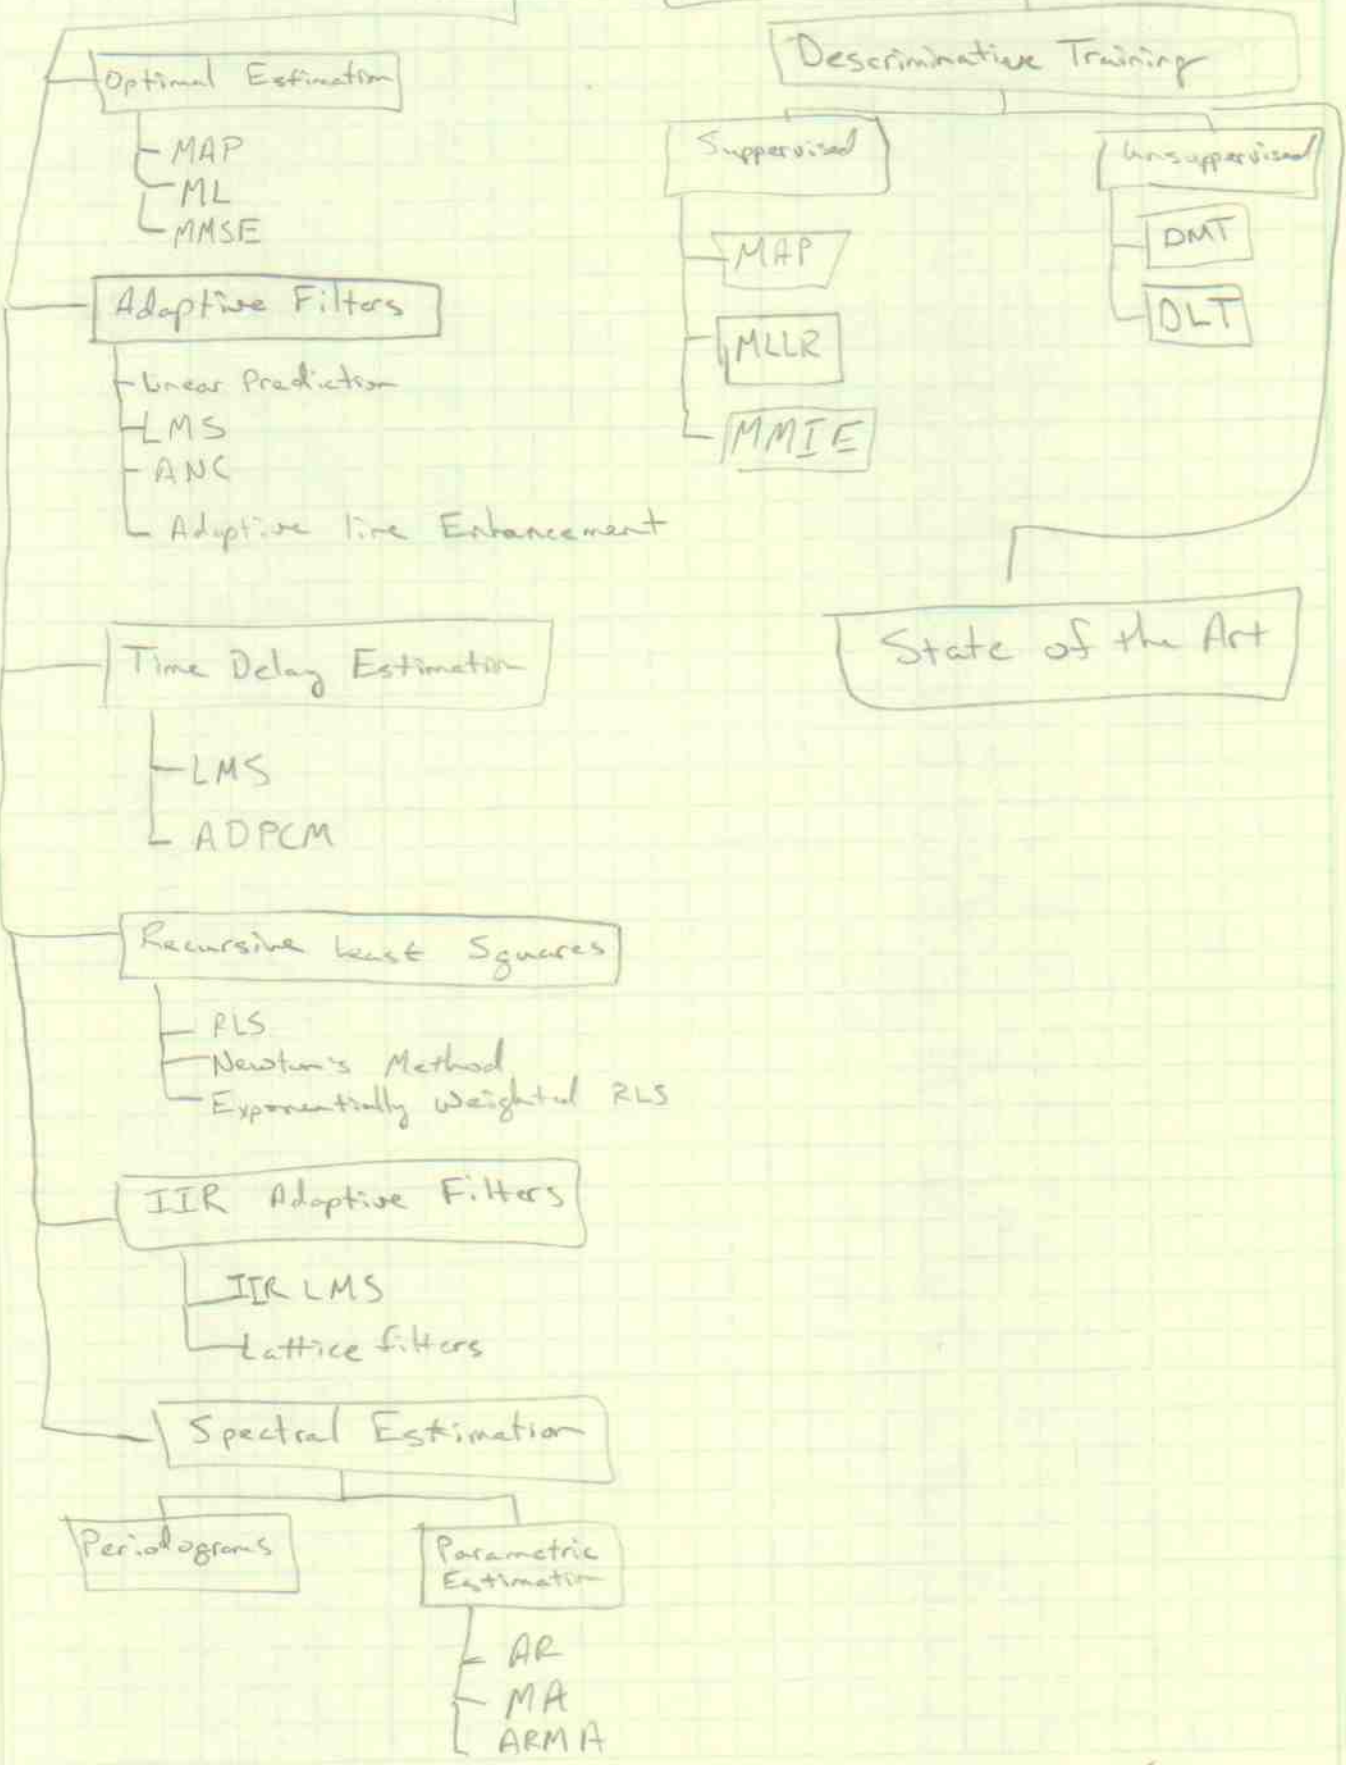 Optimal Estimation
MAP
ML
MMSE
Adaptive Filters
Linear Prediction
LMS
ANC
Adaptive line Enhancement
Time Delay Estimation
LMS
ADPCM
Recursive Least Squares
RLS
Newton's Method
Exponentially Weighted RLS
IIR Adaptive Filters
IIR LMS
Lattice filters
Spectral Estimation
Periodograms
Parametric
Estimation
AR
MA
ARMA
Descriminative Training
Suppervised
MAP
MLLR
MMIE
Unsuppervised
DMT
DLT
State of the Art